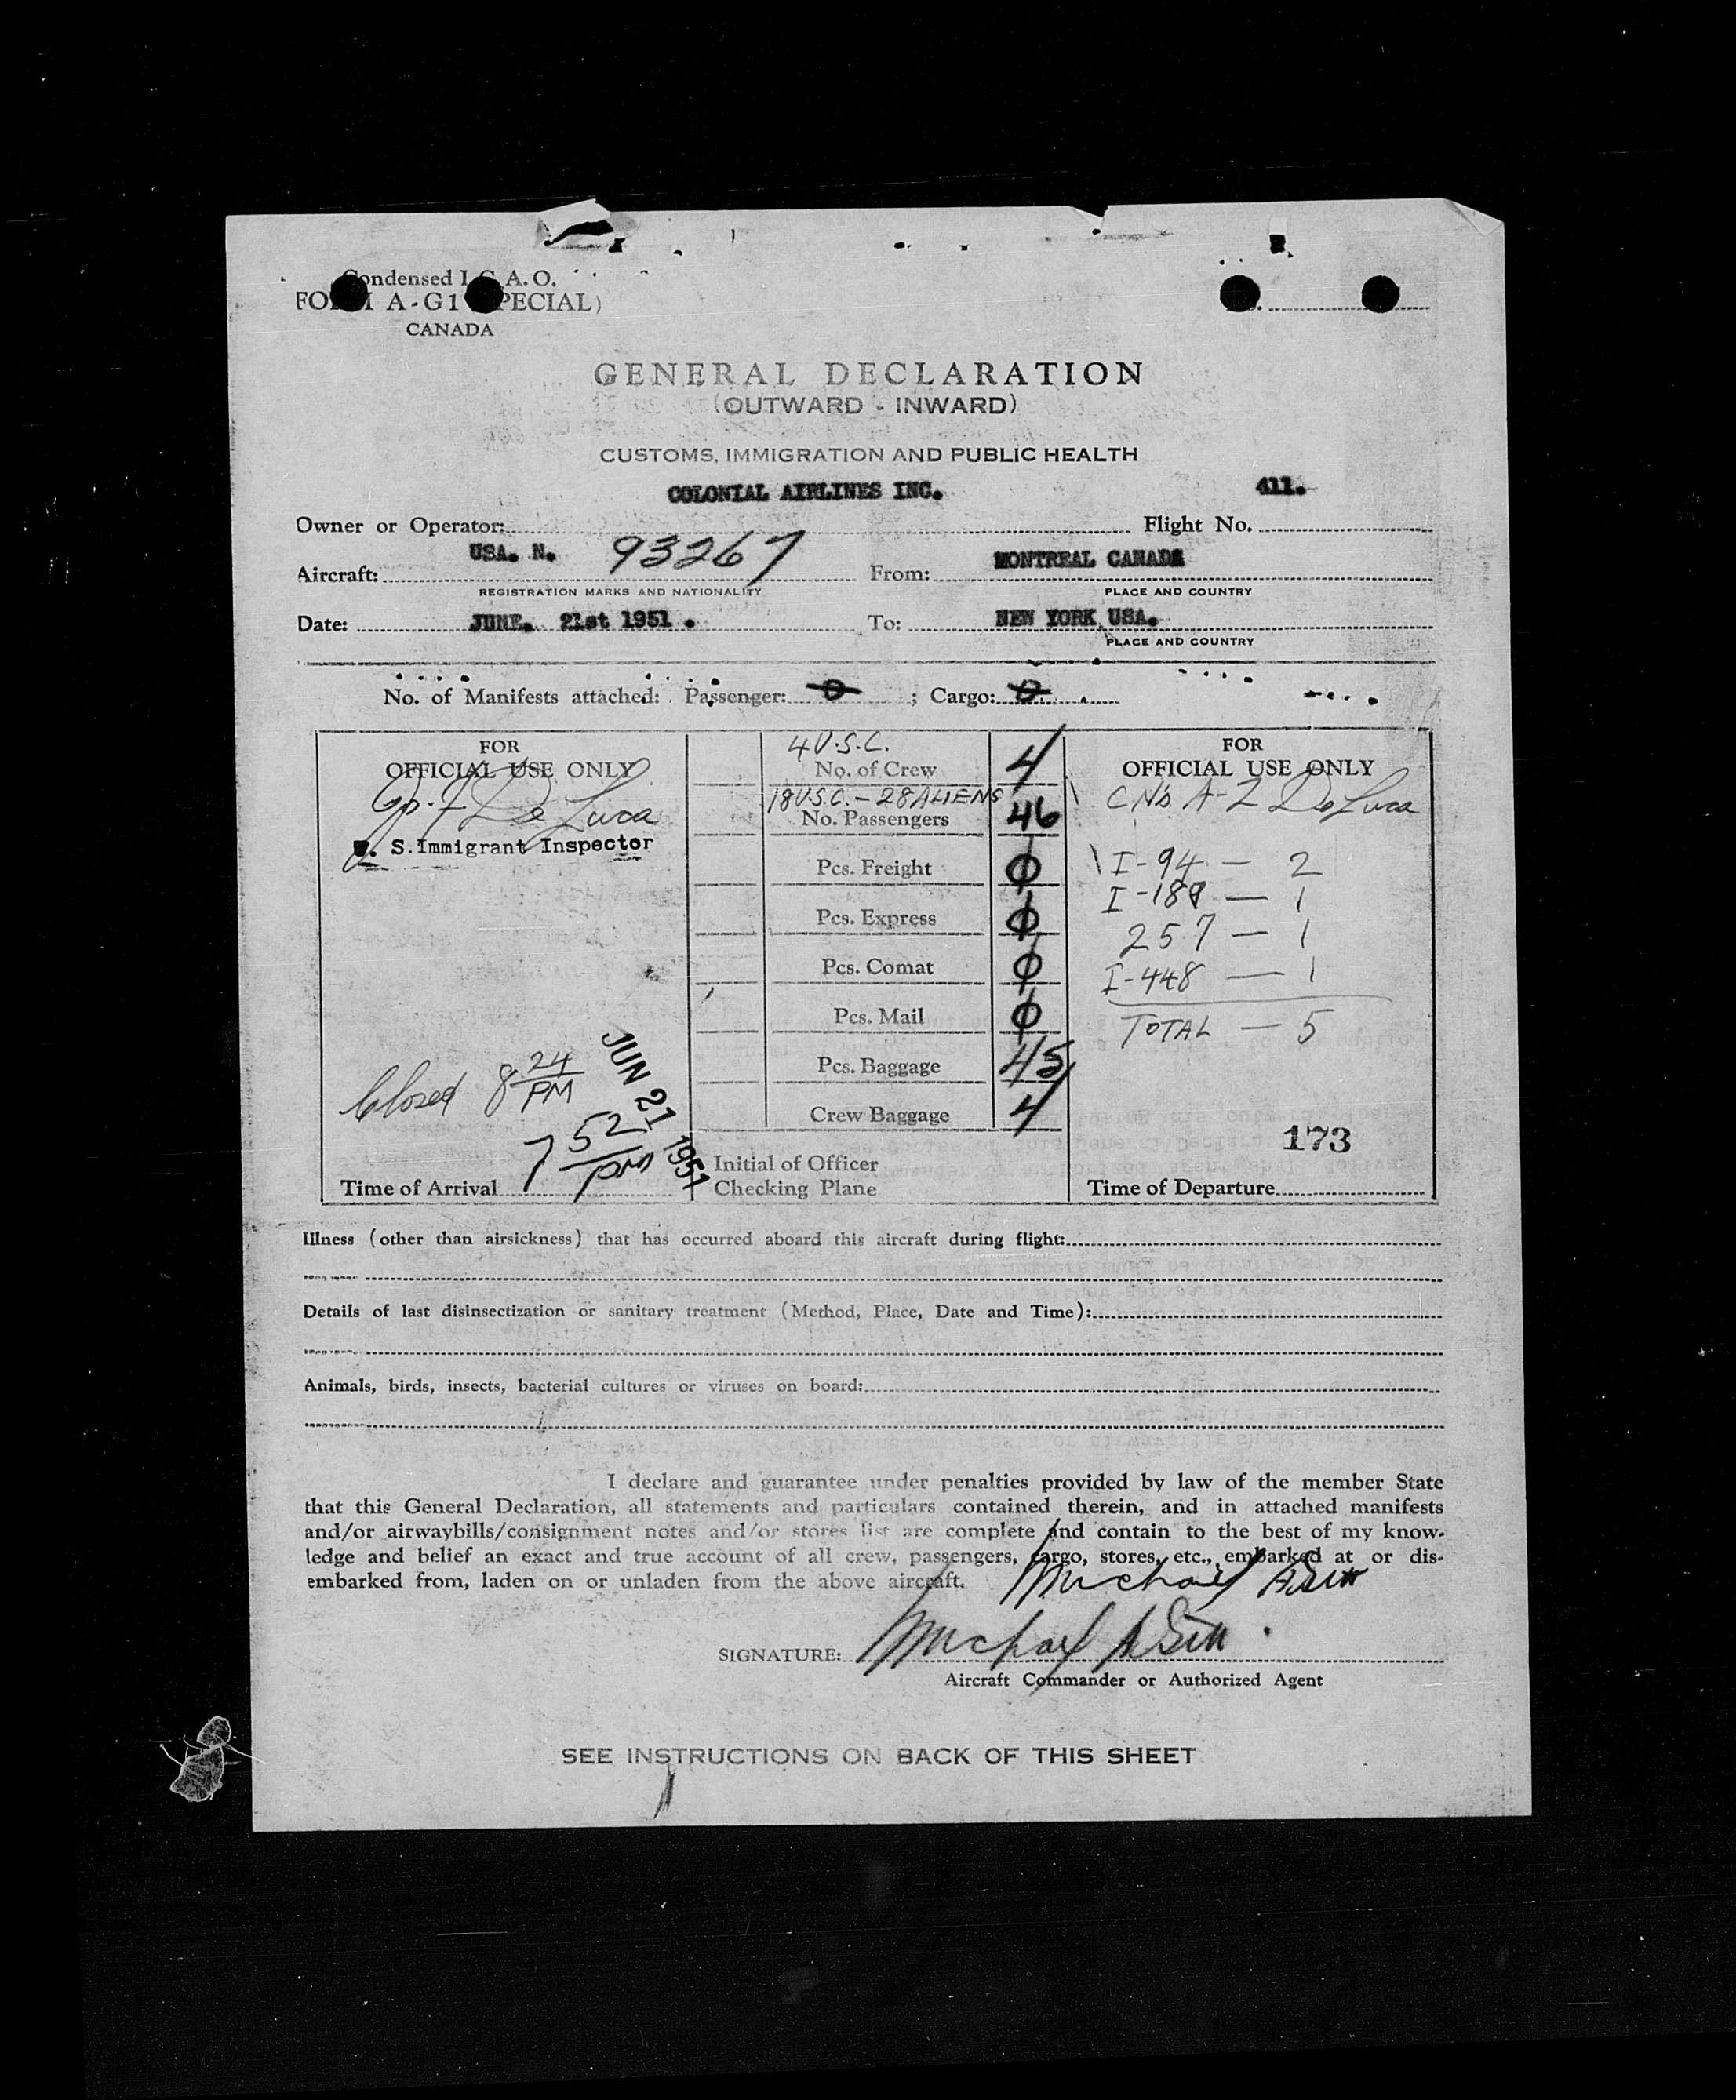 Condensed I.C.A.O.
FORM A-G1 (SPECIAL)
CANADA
GENERAL DECLARATION
(OUTWARD - INWARD)
CUSTOMS, IMMIGRATION AND PUBLIC HEALTH
COLONIAL AIRLINES INC. 411.
Owner or Operator: Flight No.
USA. N. 93267 MONTREAL CANADA
Aircraft: From:
REGISTRATION MARKS AND NATIONALITY PLACE AND COUNTRY
Date: JUNE. 21st 1951. To: NEW YORK USA.
PLACE AND COUNTRY
No. of Manifests attached: Passenger: 0 ; Cargo: 0
FOR
OFFICIAL USE ONLY
De Luca
U. S. Immigrant Inspector
Closed 8 24 PM
JUN 21 1951
7 52 pm
Time of Arrival
4 U.S.C.
No. of Crew 4
18 U.S.C. - 28 ALIENS
No. Passengers 46
Pcs. Freight 0
Pcs. Express 0
Pcs. Comat 0
Pcs. Mail 0
Pcs. Baggage 45
Crew Baggage 4
Initial of Officer
Checking Plane
FOR
OFFICIAL USE ONLY
A-Z De Luca
I-94 - 2
257 - 1
I-448 - 1
TOTAL - 5
173
Time of Departure
Illness (other than airsickness) that has occurred aboard this aircraft during flight:
Details of last disinsectization or sanitary treatment (Method, Place, Date and Time):
Animals, birds, insects, bacterial cultures or viruses on board:
I declare and guarantee under penalties provided by law of the member State
that this General Declaration, all statements and particulars contained therein, and in attached manifests
and/or airwaybills/consignment notes and/or stores list are complete and contain to the best of my know-
ledge and belief an exact and true account of all crew, passengers, cargo, stores, etc., embarked at or dis-
embarked from, laden on or unladen from the above aircraft.
Michael
SIGNATURE: Michael
Aircraft Commander or Authorized Agent
SEE INSTRUCTIONS ON BACK OF THIS SHEET